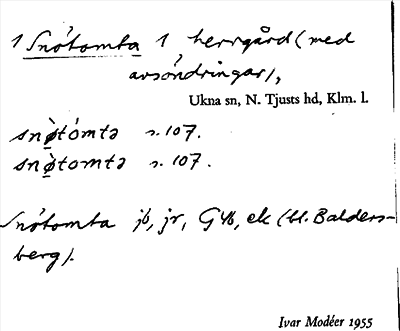 1 Snőtomta 1, herrgård (med
avsöndringar),
Ukna sn, N. Tjusts hd, Klm. l.
snø̀tómtə s. 107.
snø̀tomtə s. 107.
Snőtomta jb, jr, GW, ek (bl. Balders-
berg).
Ivar Modéer 1955